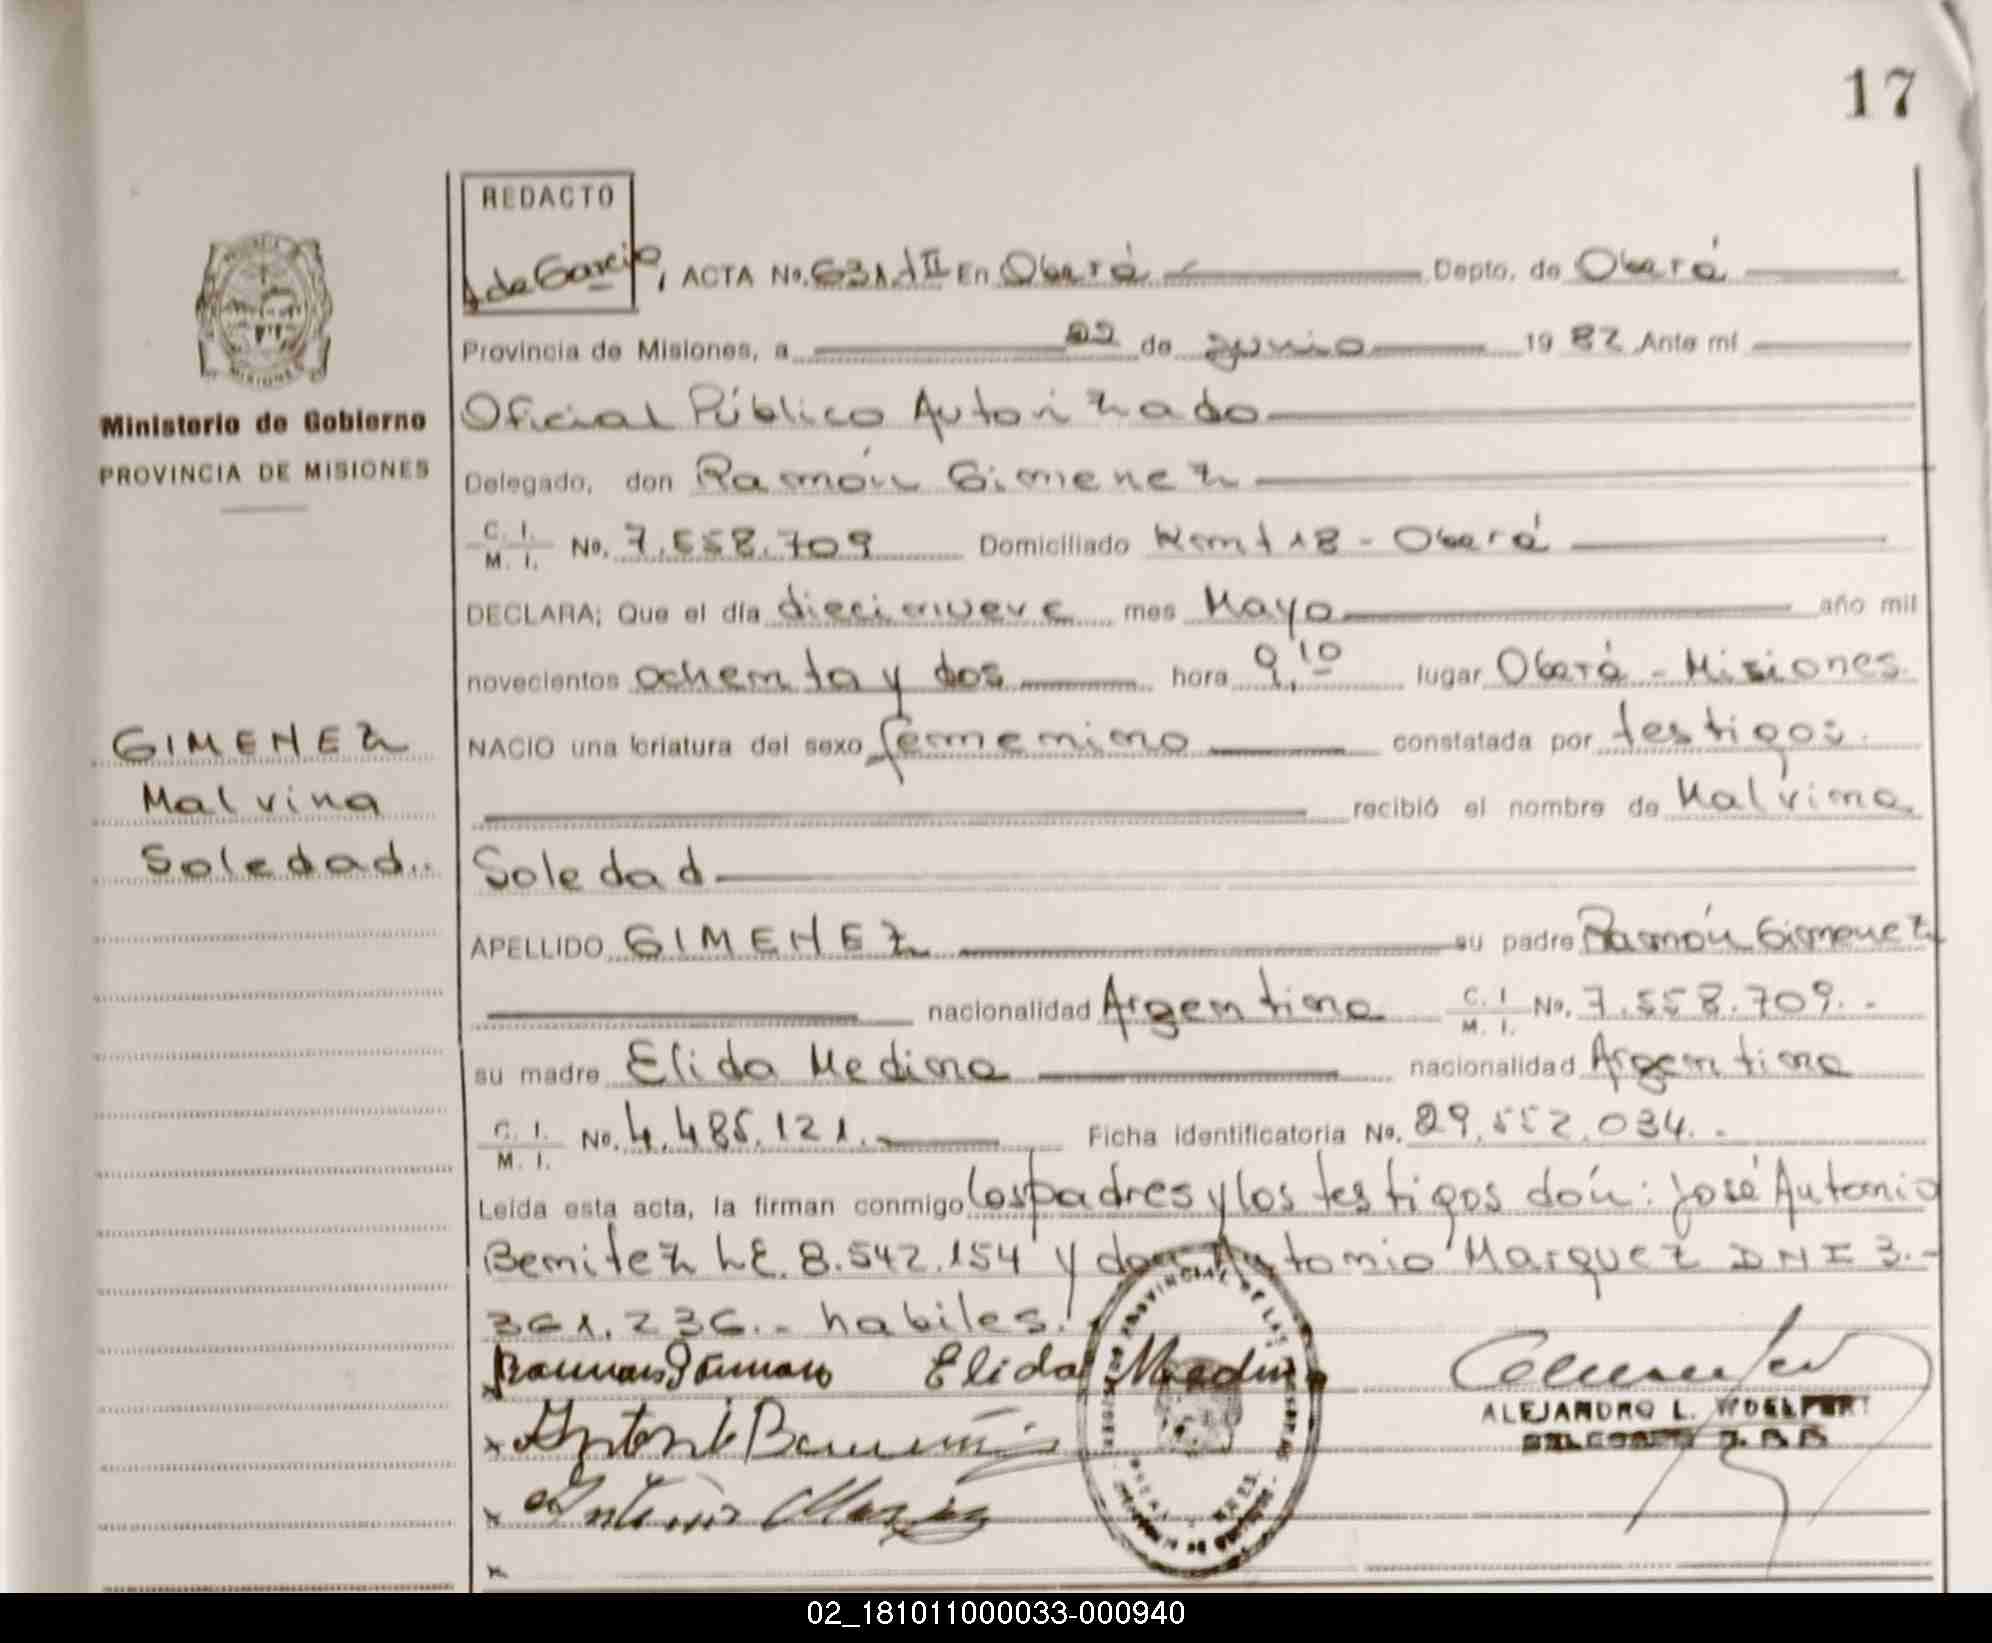 17
REDACTO
de Garcia, ACTA No. 631 tII En Oberá Depto. de Oberá
Provincia de Misiones, a 22 de junio 1982 Ante mí
Oficial Público Autorizado
Ministerio de Gobierno
PROVINCIA DE MISIONES
Delegado, don Ramón Gimenez
C. I. M. I. No. 7.558.709 Domiciliado Kmt 18 - Oberá
DECLARA; Que el día diecinueve mes Mayo año mil
novecientos ochenta y dos hora 9,10 lugar Oberá - Misiones.
GIMENEZ
Malvina
Soledad..
NACIO una criatura del sexo femenino constatada por testigos.
recibió el nombre de Malvina
Soledad
APELLIDO GIMENEZ su padre Ramón Gimenez
nacionalidad Argentina C. I. M. I. No. 7.558.709.-
su madre Elida Medina nacionalidad Argentina
C. I. M. I. No. 4.485.121. Ficha identificatoria No. 29.552.034.-
Leída esta acta, la firman conmigo los padres y los testigos dón: José Antonio
Benitez LE. 8.542.154 y don Antonio Marquez DNI 3.-
361.236.- habiles.
Elida Medina
Antonio
ALEJANDRO L. WOELFERT
x
02_181011000033-000940